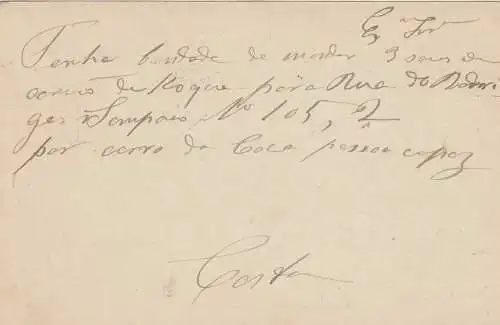 Exmo Snr
Tenha bondade de mandar 3 sacas de
carvão de Koque para Rua do Rodri
ges Sampaio No 105, 2º
por carro da Casa pessoa capaz
Costa